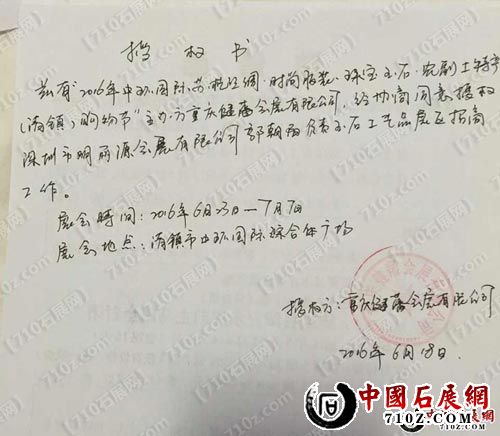 授权书
兹有"2016年中环国际·苏杭丝绸·时尚服装·珠宝玉石·农副土特产
(清镇)购物节"主办方重庆健藩会展有限公司,经协商同意授权
深圳市明丽源会展有限公司郭朝阳负责玉石工艺品展区招商
工作。
展会时间:2016年6月23日—7月7日
展会地点:清镇市中环国际综合体广场
授权方:重庆健藩会展有限公司
2016年6月18日.
中國石展網
710z.com